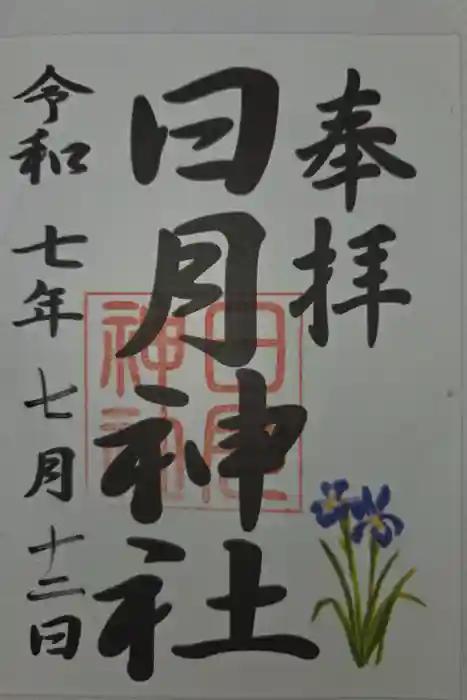 奉拝
日月神社
日月神社
令和七年七月十二日